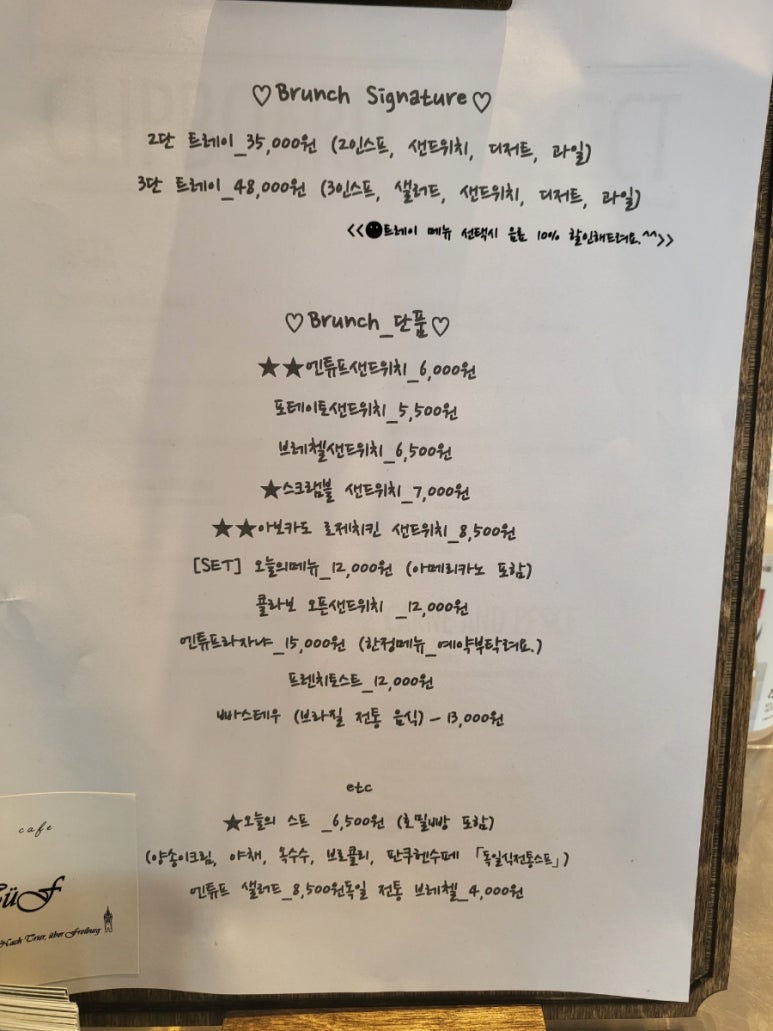 ♡Brunch Signature♡
2단 트레이_35,000원 (2인스프, 샌드위치, 디저트, 과일)
3단 트레이_48,000원 (3인스프, 샐러드, 샌드위치, 디저트, 과일)
<<트레이 메뉴 선택시 음료 10% 할인해드려요.^^>>
♡Brunch_단품♡
★★엔튜프샌드위치_6,000원
포테이토샌드위치_5,500원
브레첼샌드위치_6,500원
★스크램블 샌드위치_7,000원
★★아보카도 로제치킨 샌드위치_8,500원
[SET] 오늘의메뉴_12,000원 (아메리카노 포함)
콜라보 오픈샌드위치 _12,000원
엔튜프라자냐_15,000원 (한정메뉴_예약부탁려요.)
프렌치토스트_12,000원
빠스테우 (브라질 전통 음식) - 13,000원
etc
★오늘의 스프 _6,500원 (호밀빵 포함)
(양송이크림, 야채, 옥수수, 브로콜리, 판쿠헨수페 「독일식전통스트」)
엔튜프 샐러드_8,500원독일 전통 브레첼_4,000원
cafe
üf
Nach Trier, über Freiburg